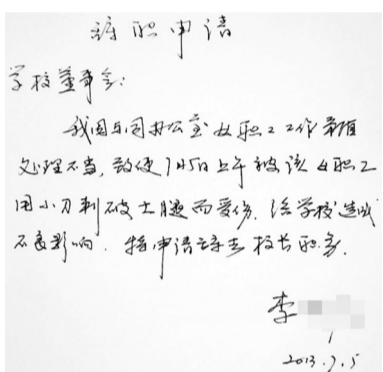 辞职申请
学校董事会:
我因与同办公室女职工工作矛盾
处理不当,致使7月5日上午被该女职工
用小刀刺破土腿而受伤.给学校造成
不良影响.特申请辞去校长职务.
李
2013.7.5